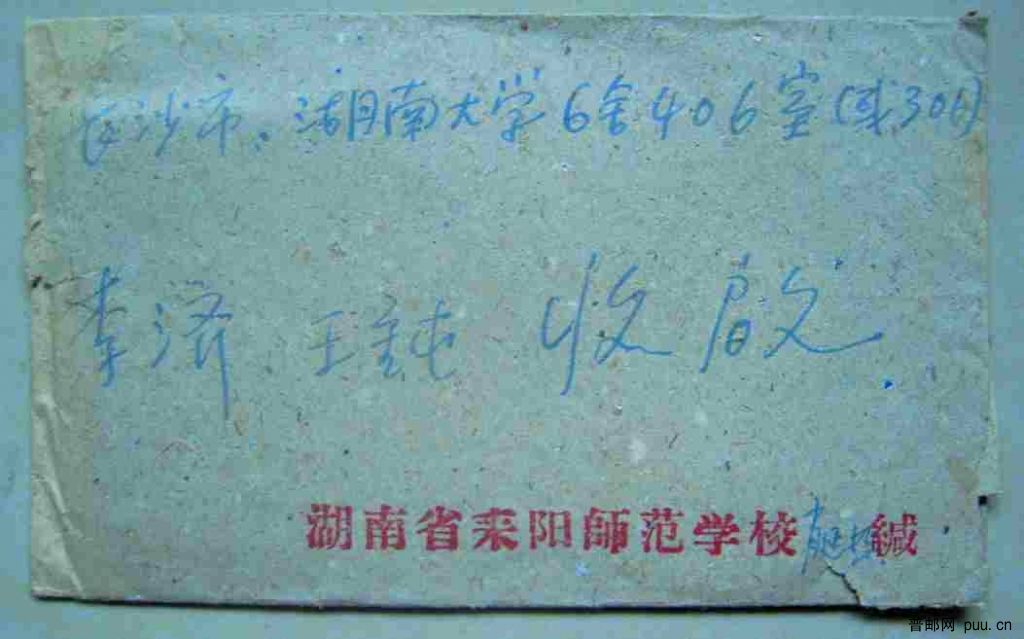 长沙市、湖南大学6舍406室(或306)
李济 王 收启
湖南省耒阳師范学校 缄
普邮网 puu.cn